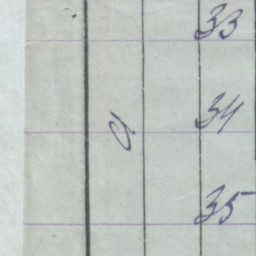 33
a 34
35